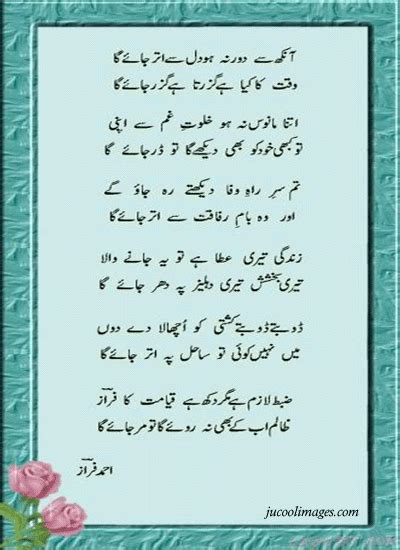 آنکھ سے دور نہ ہو دل سے اتر جائے گا
وقت کا کیا ہے گزرتا ہے گزر جائے گا
اتنا مانوس نہ ہو خلوتِ غم سے اپنی
تو کبھی خود کو بھی دیکھے گا تو ڈر جائے گا
تم سرِ راہِ وفا دیکھتے رہ جاؤ گے
اور وہ بامِ رفاقت سے اتر جائے گا
زندگی تیری عطا ہے تو یہ جانے والا
تیری بخشش تیری دہلیز پہ دھر جائے گا
ڈوبتے ڈوبتے کشتی کو اُچھالا دے دوں
میں نہیں کوئی تو ساحل پہ اتر جائے گا
ضبط لازم ہے مگر دکھ ہے قیامت کا فرازؔ
ظالم اب کے بھی نہ روئے گا تو مر جائے گا
احمد فرازؔ
jucoolimages.com